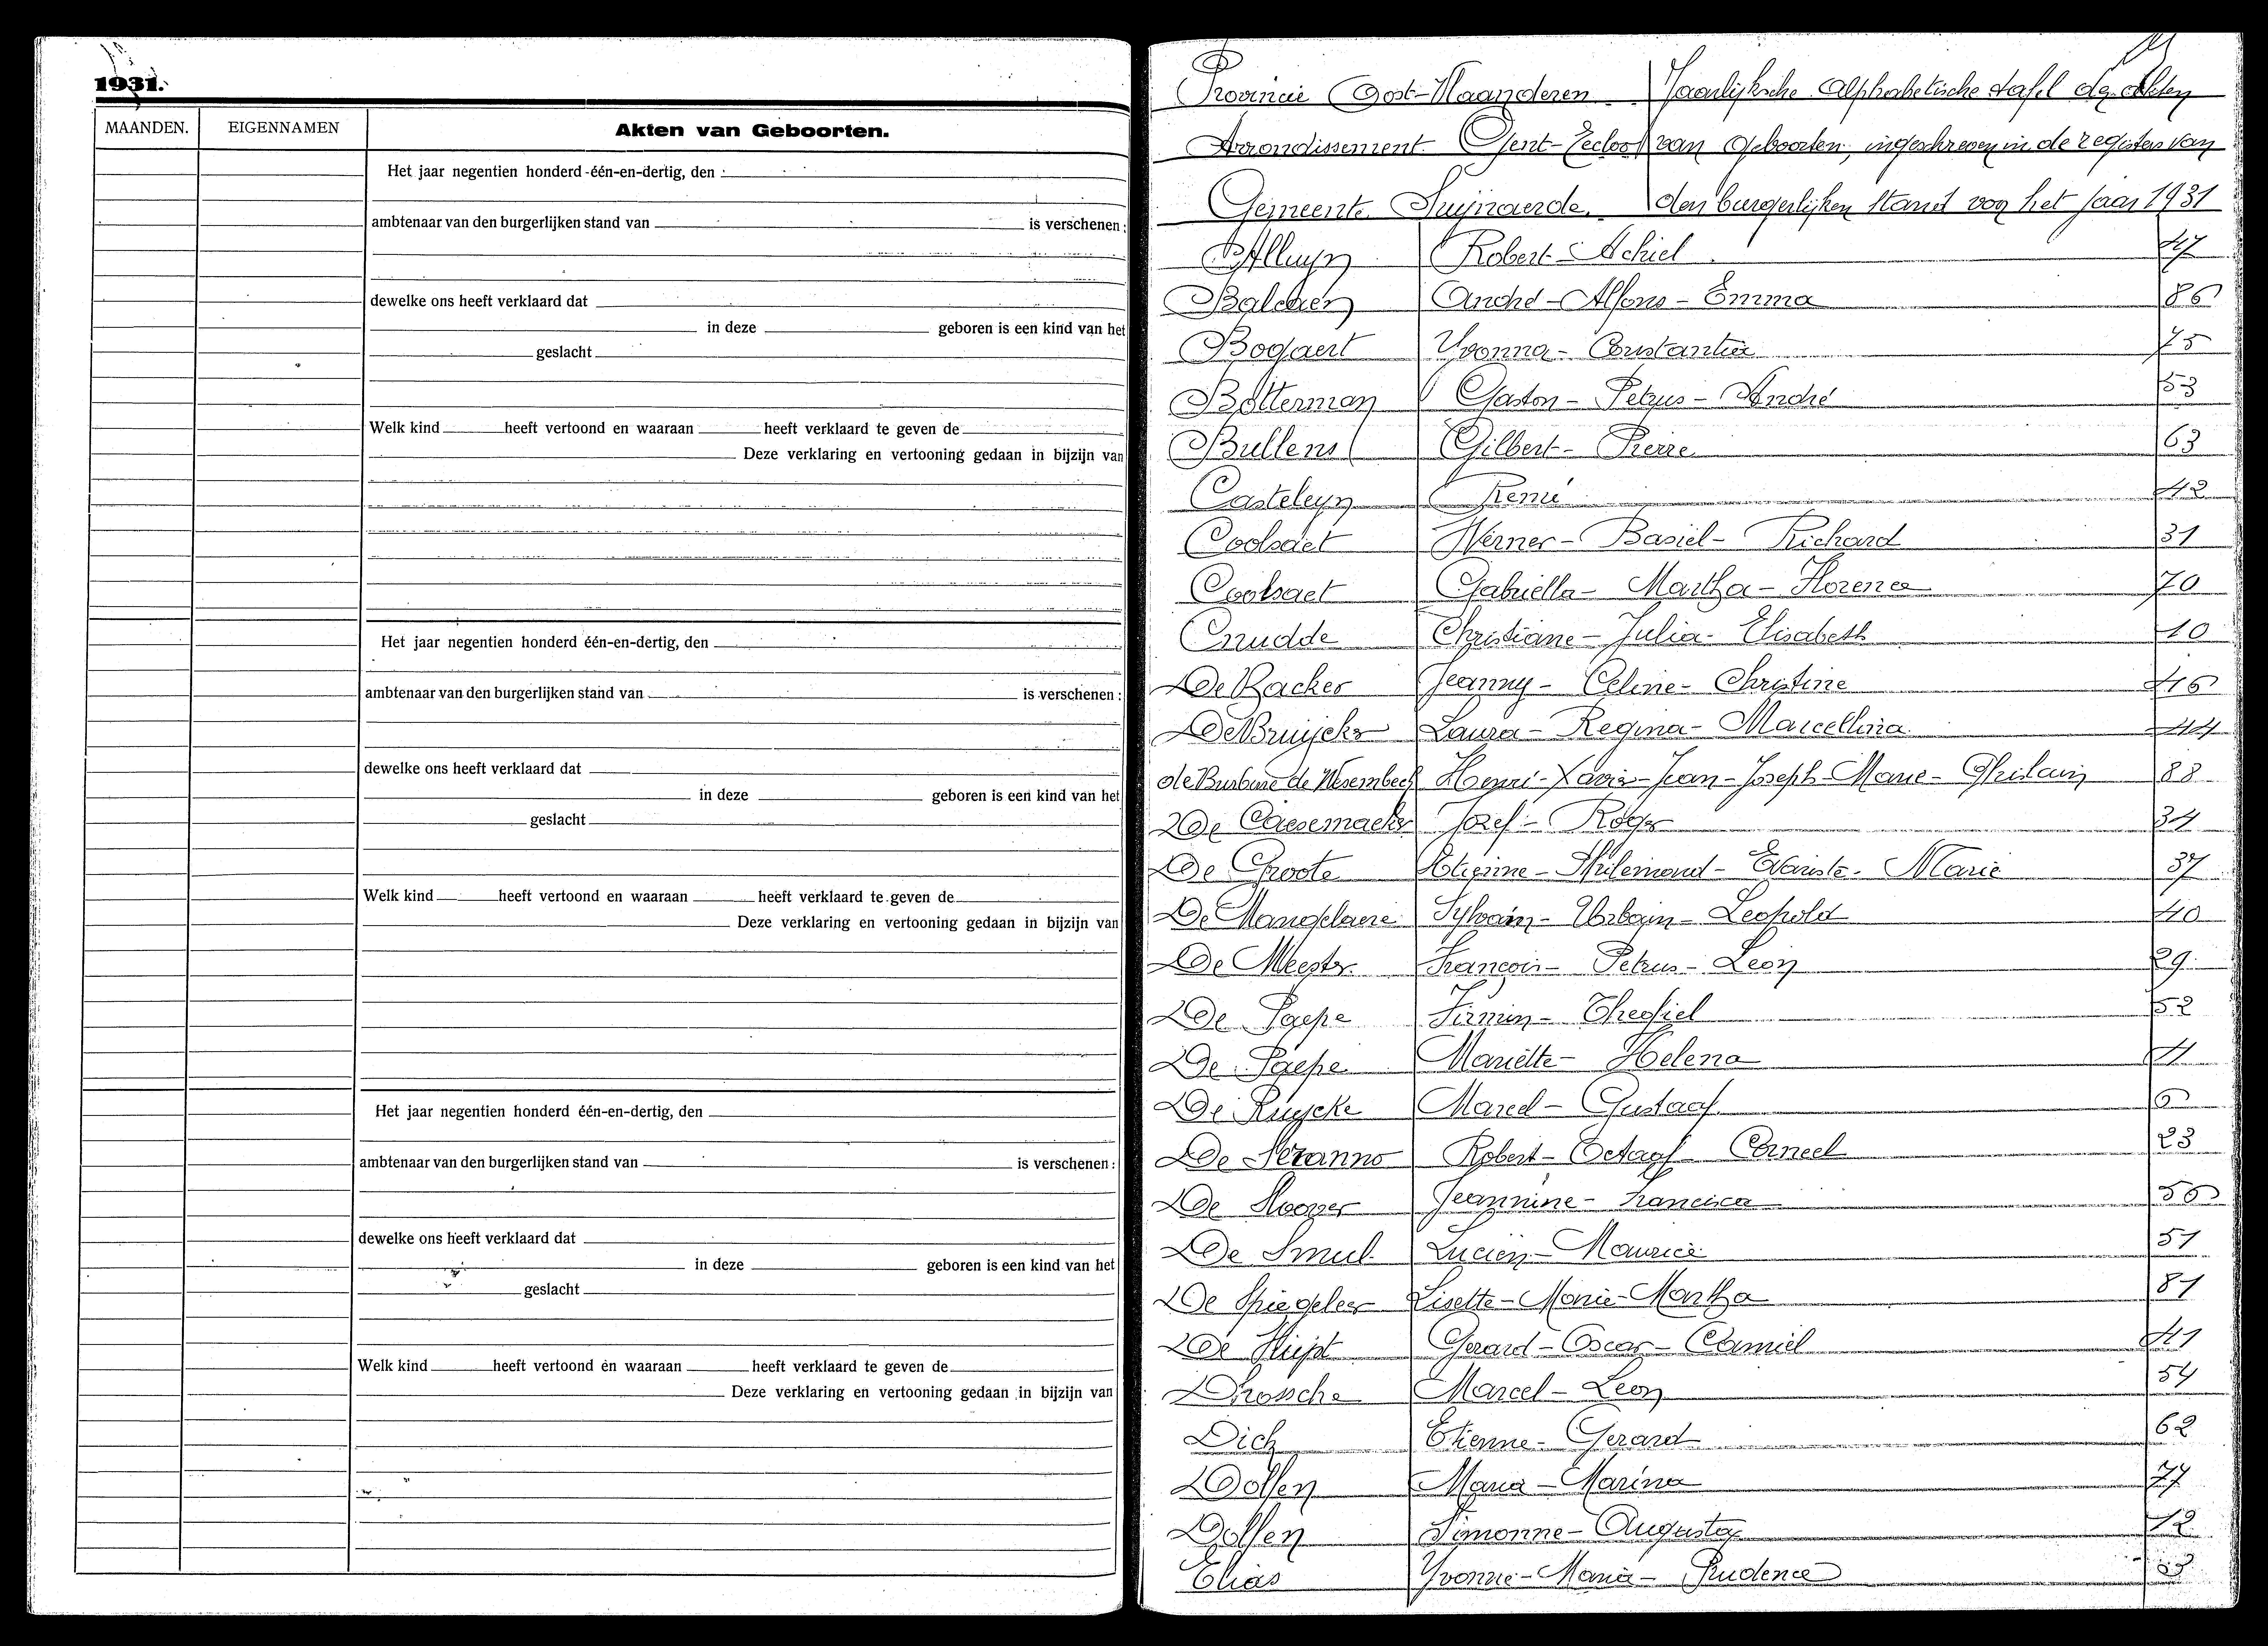 1931.
MAANDEN. EIGENNAMEN Akten van Geboorten.
Het jaar negentien honderd één-en-dertig, den
ambtenaar van den burgerlijken stand van is verschenen:
dewelke ons heeft verklaard dat
in deze geboren is een kind van het
geslacht
Welk kind heeft vertoond en waaraan heeft verklaard te geven de
Deze verklaring en vertooning gedaan in bijzijn van
Het jaar negentien honderd één-en-dertig, den
ambtenaar van den burgerlijken stand van is verschenen:
dewelke ons heeft verklaard dat
in deze geboren is een kind van het
geslacht
Welk kind heeft vertoond en waaraan heeft verklaard te geven de
Deze verklaring en vertooning gedaan in bijzijn van
Het jaar negentien honderd één-en-dertig, den
ambtenaar van den burgerlijken stand van is verschenen:
dewelke ons heeft verklaard dat
in deze geboren is een kind van het
geslacht
Welk kind heeft vertoond en waaraan heeft verklaard te geven de
Deze verklaring en vertooning gedaan in bijzijn van
Provincie Oost-Vlaanderen Jaarlijksche Alphabetische tafel der akten
Arrondissement Gent-Eecloo van Geboorten, ingeschreven in de registers van
Gemeente Swijnaerde. den burgerlijken stand voor het jaar 1931
Alluyn Robert-Achiel 47
Balcaen André-Alfons-Emma 86
Bogaert Yvonna-Constantia 75
Botterman Gaston-Petrus-André 53
Bullens Gilbert-Pierre 63
Casteleyn René 42
Coolsaet Werner-Basiel-Richard 31
Coolsaet Gabriella-Martha-Florence 70
Cnudde Christiane-Julia-Elisabeth 10
De Backer Jeanny-Celine-Christine 46
De Bruycker Laura-Regina-Marcellina 44
de Burbure de Wesembeek Henri-Xavier-Jean-Joseph-Marie-Ghislain 88
De Caesemaeker Jozef-Roger 34
De Groote Etienne-Philemond-Evariste-Marie 37
De Mangelaere Sylvain-Urbain-Leopold 40
De Meester François-Petrus-Leon 29
De Paepe Firmin-Theofiel 52
De Paepe Mariette-Helena 4
De Ruycke Marcel-Gustaaf 6
De Seranno Robert-Octaaf-Corneel 23
De Sloover Jeannine-Francisca 56
De Smul Lucien-Maurice 51
De Spiegeleer Lisette-Marie-Martha 81
De Vliegt Gerard-Oscar-Camiel 41
Dhossche Marcel-Leon 54
Dick Etienne-Gerard 62
Dolfen Maria-Marina 77
Dolfen Simonne-Augusta 12
Elias Yvonne-Maria-Prudence